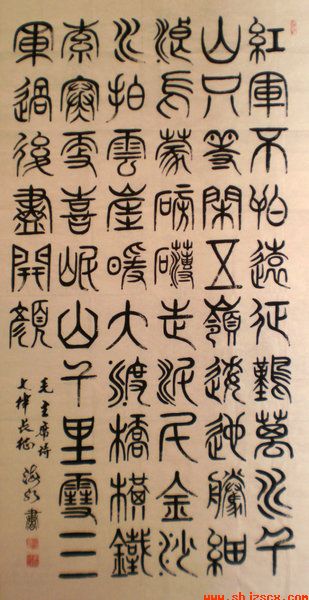 紅軍不怕遠征難萬水千
山只等閑五嶺逶迤騰細
浪烏蒙磅礴走泥丸金沙
水拍雲崖暖大渡橋橫鐵
索寒更喜岷山千里雪三
軍過後盡開顏
毛主席詩
七律長征
書